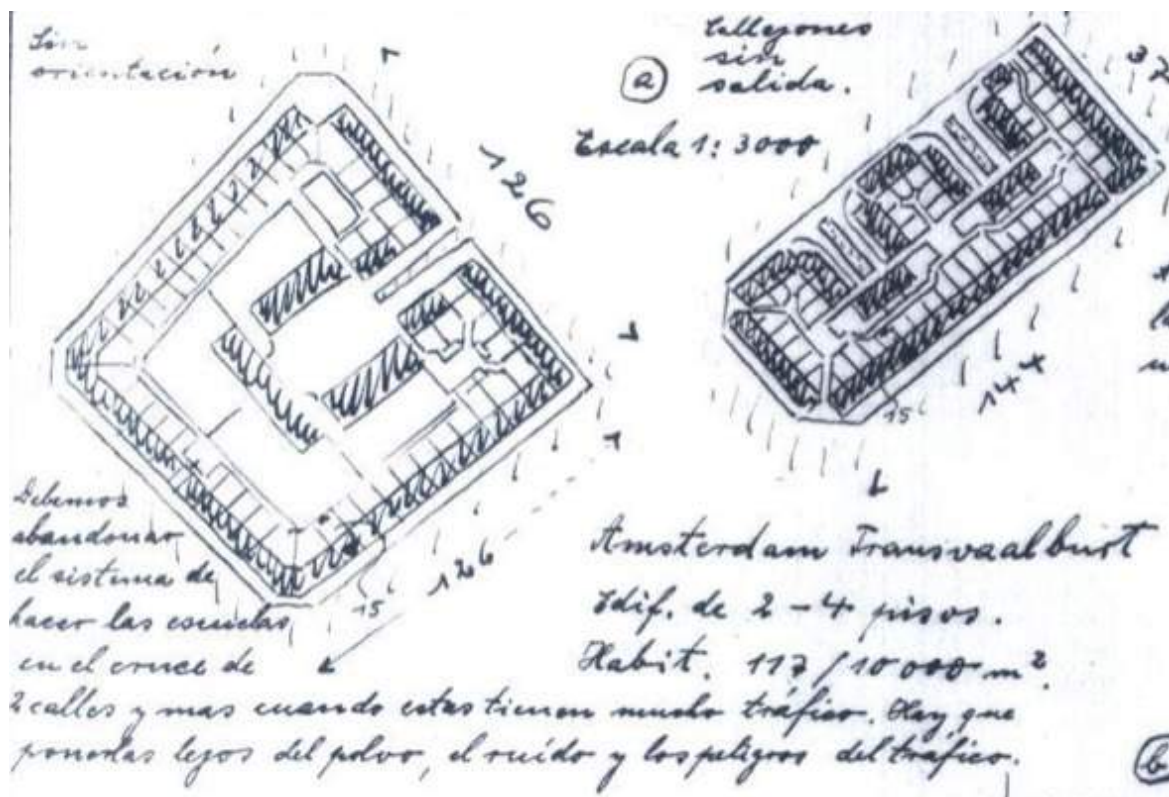 Sin
orientación
126
126
15
a
Callejones
sin
salida.
Escala 1: 3000
37
144
15
Amsterdam Transvaalburt
Edif. de 2-4 pisos.
Habit. 117/10000 m².
Debemos
abandonar
el sistema de
hacer las escuelas
en el cruce de
2 calles y mas cuando estas tienen mucho tráfico. Hay que
ponerlas lejos del polvo, el ruído y los peligros del tráfico.
b